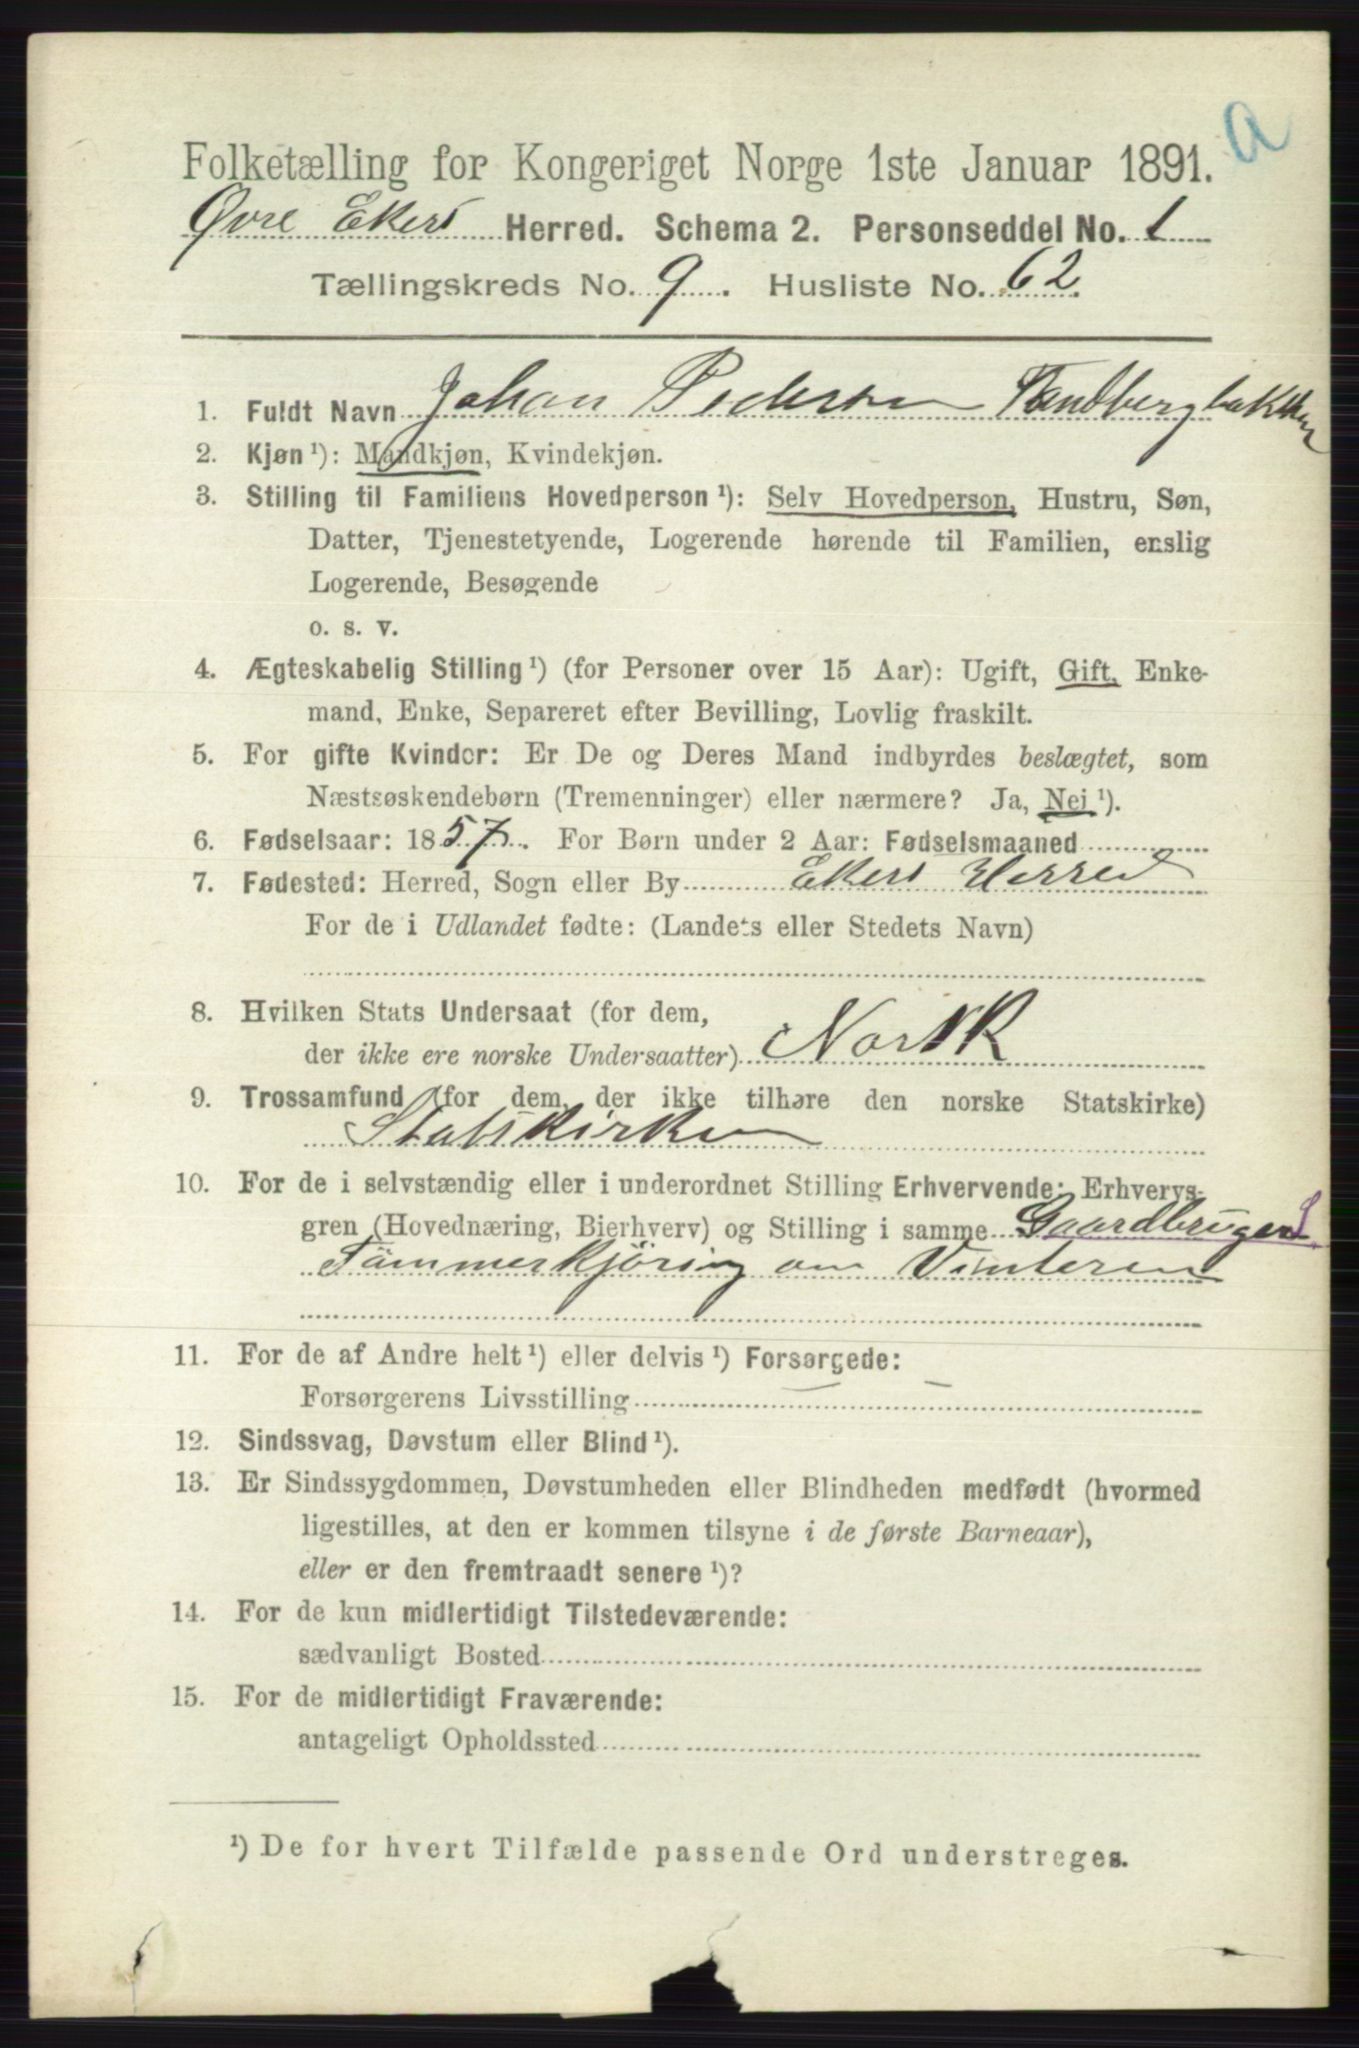 a
Folketælling for Kongeriget Norge 1ste Januar 1891.
Øvre Ekers Herred. Schema 2. Personseddel No. 1
Tællingskreds No. 9. Husliste No. 62.
1. Fuldt Navn Johan Pedersen Tandbergbakken
2. Kjøn ¹): Mandkjøn, Kvindekjøn.
3. Stilling til Familiens Hovedperson ¹): Selv Hovedperson, Hustru, Søn,
Datter, Tjenestetyende, Logerende hørende til Familien, enslig
Logerende, Besøgende
o. s. v.
4. Ægteskabelig Stilling ¹) (for Personer over 15 Aar): Ugift, Gift, Enke-
mand, Enke, Separeret efter Bevilling, Lovlig fraskilt.
5. For gifte Kvinder: Er De og Deres Mand indbyrdes beslægtet, som
Næstsøskendebørn (Tremenninger) eller nærmere? Ja, Nei ¹).
6. Fødselsaar: 1857. For Børn under 2 Aar: Fødselsmaaned
7. Fødested: Herred, Sogn eller By Ekers Herred
For de i Udlandet fødte: (Landets eller Stedets Navn)
8. Hvilken Stats Undersaat (for dem,
der ikke ere norske Undersaatter) Norsk
9. Trossamfund (for dem, der ikke tilhøre den norske Statskirke)
Statskirken
10. For de i selvstændig eller i underordnet Stilling Erhvervende: Erhvervs-
gren (Hovednæring, Bierhverv) og Stilling i samme Gaardbruger S
Tömmerkjöring om Vinteren
11. For de af Andre helt ¹) eller delvis ¹) Forsørgede:
Forsørgerens Livsstilling
12. Sindssvag, Døvstum eller Blind ¹).
13. Er Sindssygdommen, Døvstumheden eller Blindheden medfødt (hvormed
ligestilles, at den er kommen tilsyne i de første Barneaar),
eller er den fremtraadt senere ¹)?
14. For de kun midlertidigt Tilstedeværende:
sædvanligt Bosted
15. For de midlertidigt Fraværende:
antageligt Opholdssted
¹) De for hvert Tilfælde passende Ord understreges.